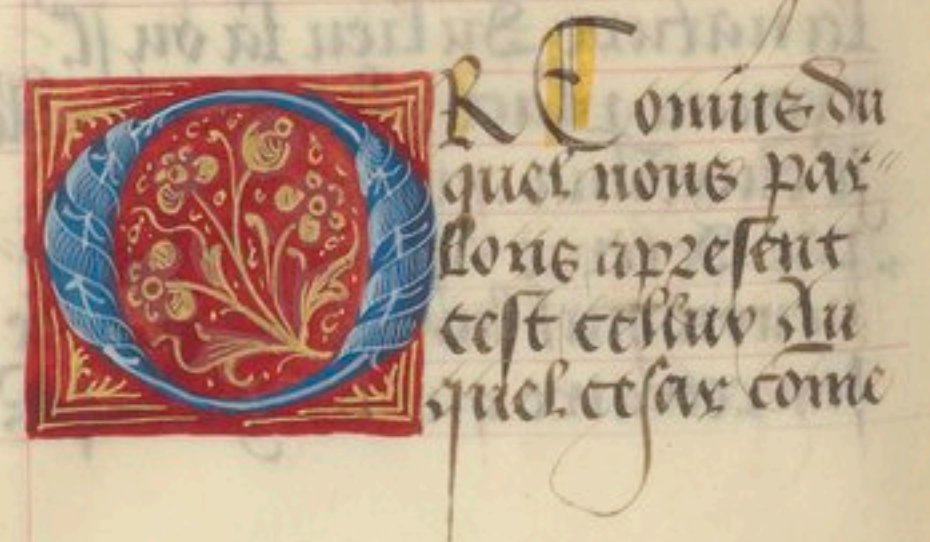 OR Comius du
quel nous par〃
lons apresent
cest celluy Au
quel cesar come